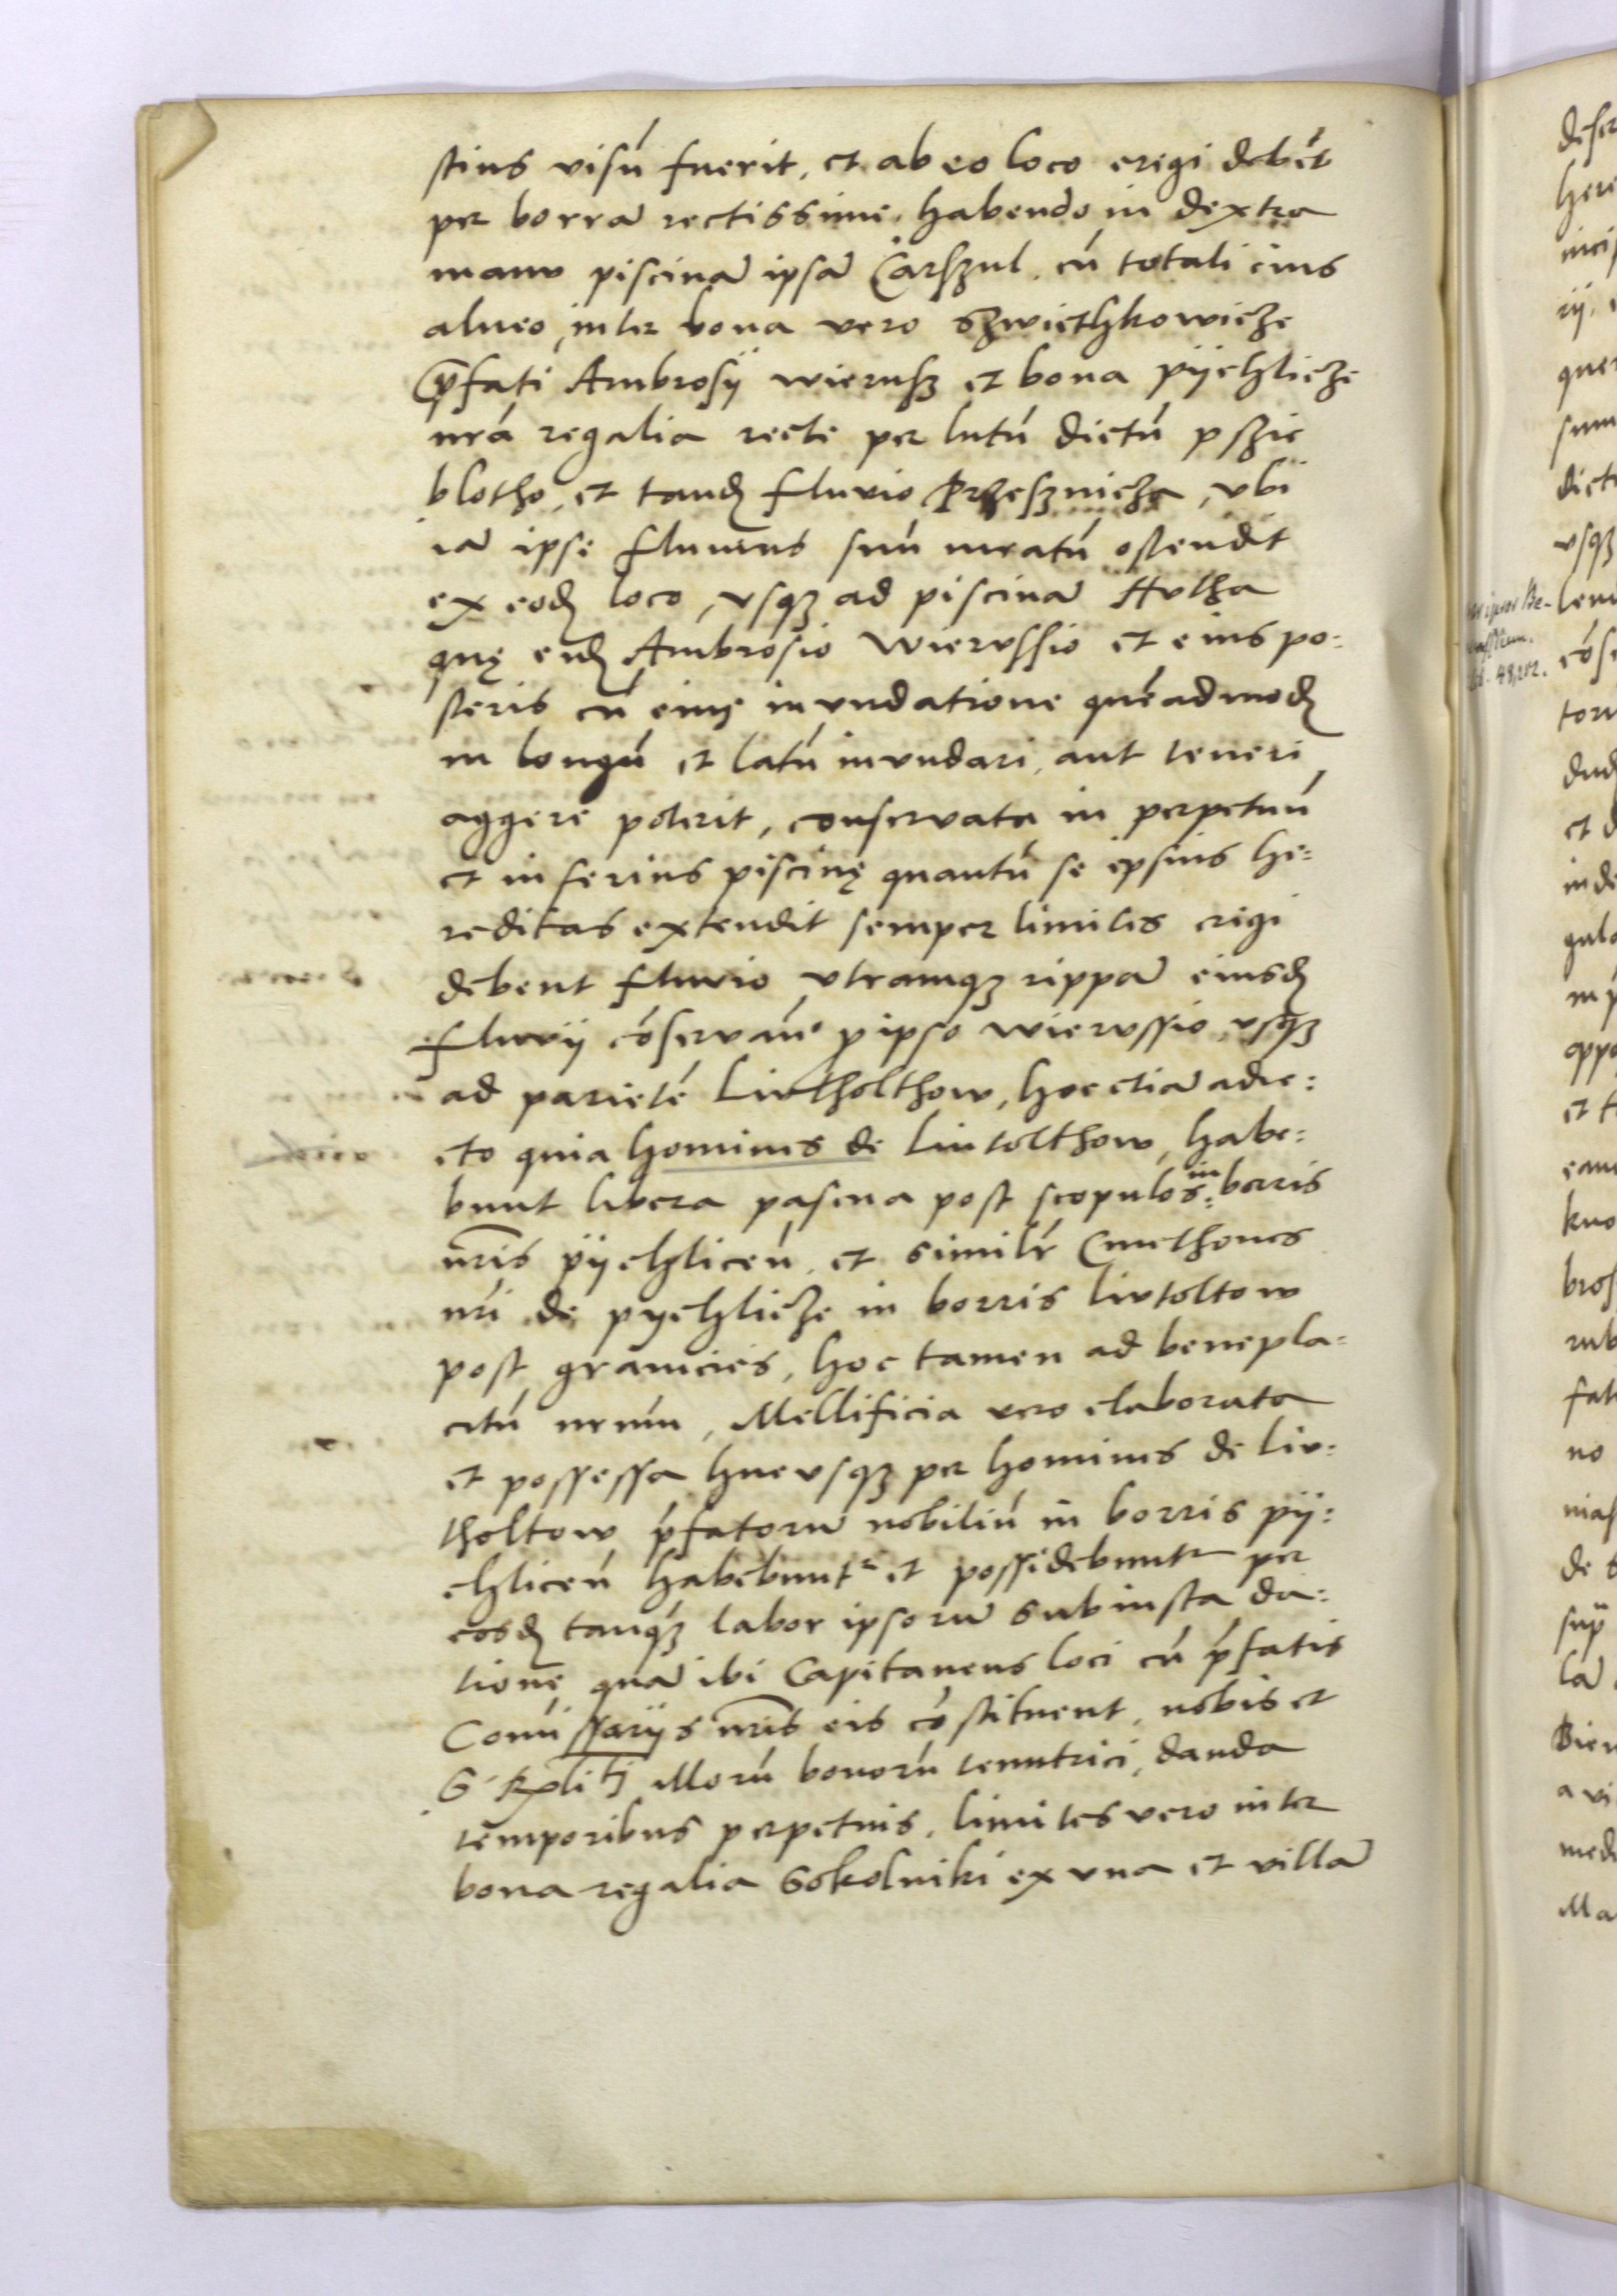 stius visū fuerit, et ab eo loco eregi debēt
per borrā rectissime, habendo in dextra
manu piscinā ipsā Carszul. cū totali eius
alueo, inter bona vero Szwiethkowicze
p̄fati Ambrosÿ Wierusz et bona pÿchlicze
nr̄a regalia recte per lutū dictū pszie
blotho, et tandē fluvio Przesznicza, vbi
iā ipse fluuius suū meatū ostendit
ex eodē loco, vsq3 ad piscinā Hutha
quę eidē Ambrosio Wierussio et eius po:
steris cū eius inundatione quēadmodū
in longū et latū inundari, aut teneri
aggere poterit, conservata in perpetuū
et inferius piscinę quantū se ipsius he:
reditas extendit semper limites erigi
debent fluvio vtramq3 rippā eiusdē
fluvÿ cōservan̄ p ipso Wierussio, vsq3
ad parietē Liutholthow, hoc etiā adie:
cto quia homines de Liutolthow, habe:
bunt libera pascua post scopulos in borris
nr̄is pÿchliceñ, et similr̄ Cmethones
nr̄i de pychlicze in borris Liutoltow
post granicies, hoc tamen ad benepla:
citū nr̄um, Mellificia vero elaborata
et possessa hucusq3 per homines de Liu:
tholtow p̄fatorū nobiliū in borris pÿ:
chliceñ habebunt̄ et possidebuntr per
eosdē tanq3 labor ipsorū sub iusta da:
tione quā ibi Capitaneus loci cū p̄fatis
Comissarÿs nr̄is eis cōstituent, nobis et
S. Rplītj illorū bonorū tenutrici, danda
temporibus perpetuis, limites vero inter
bona regalia Sokolniki ex vna et villā